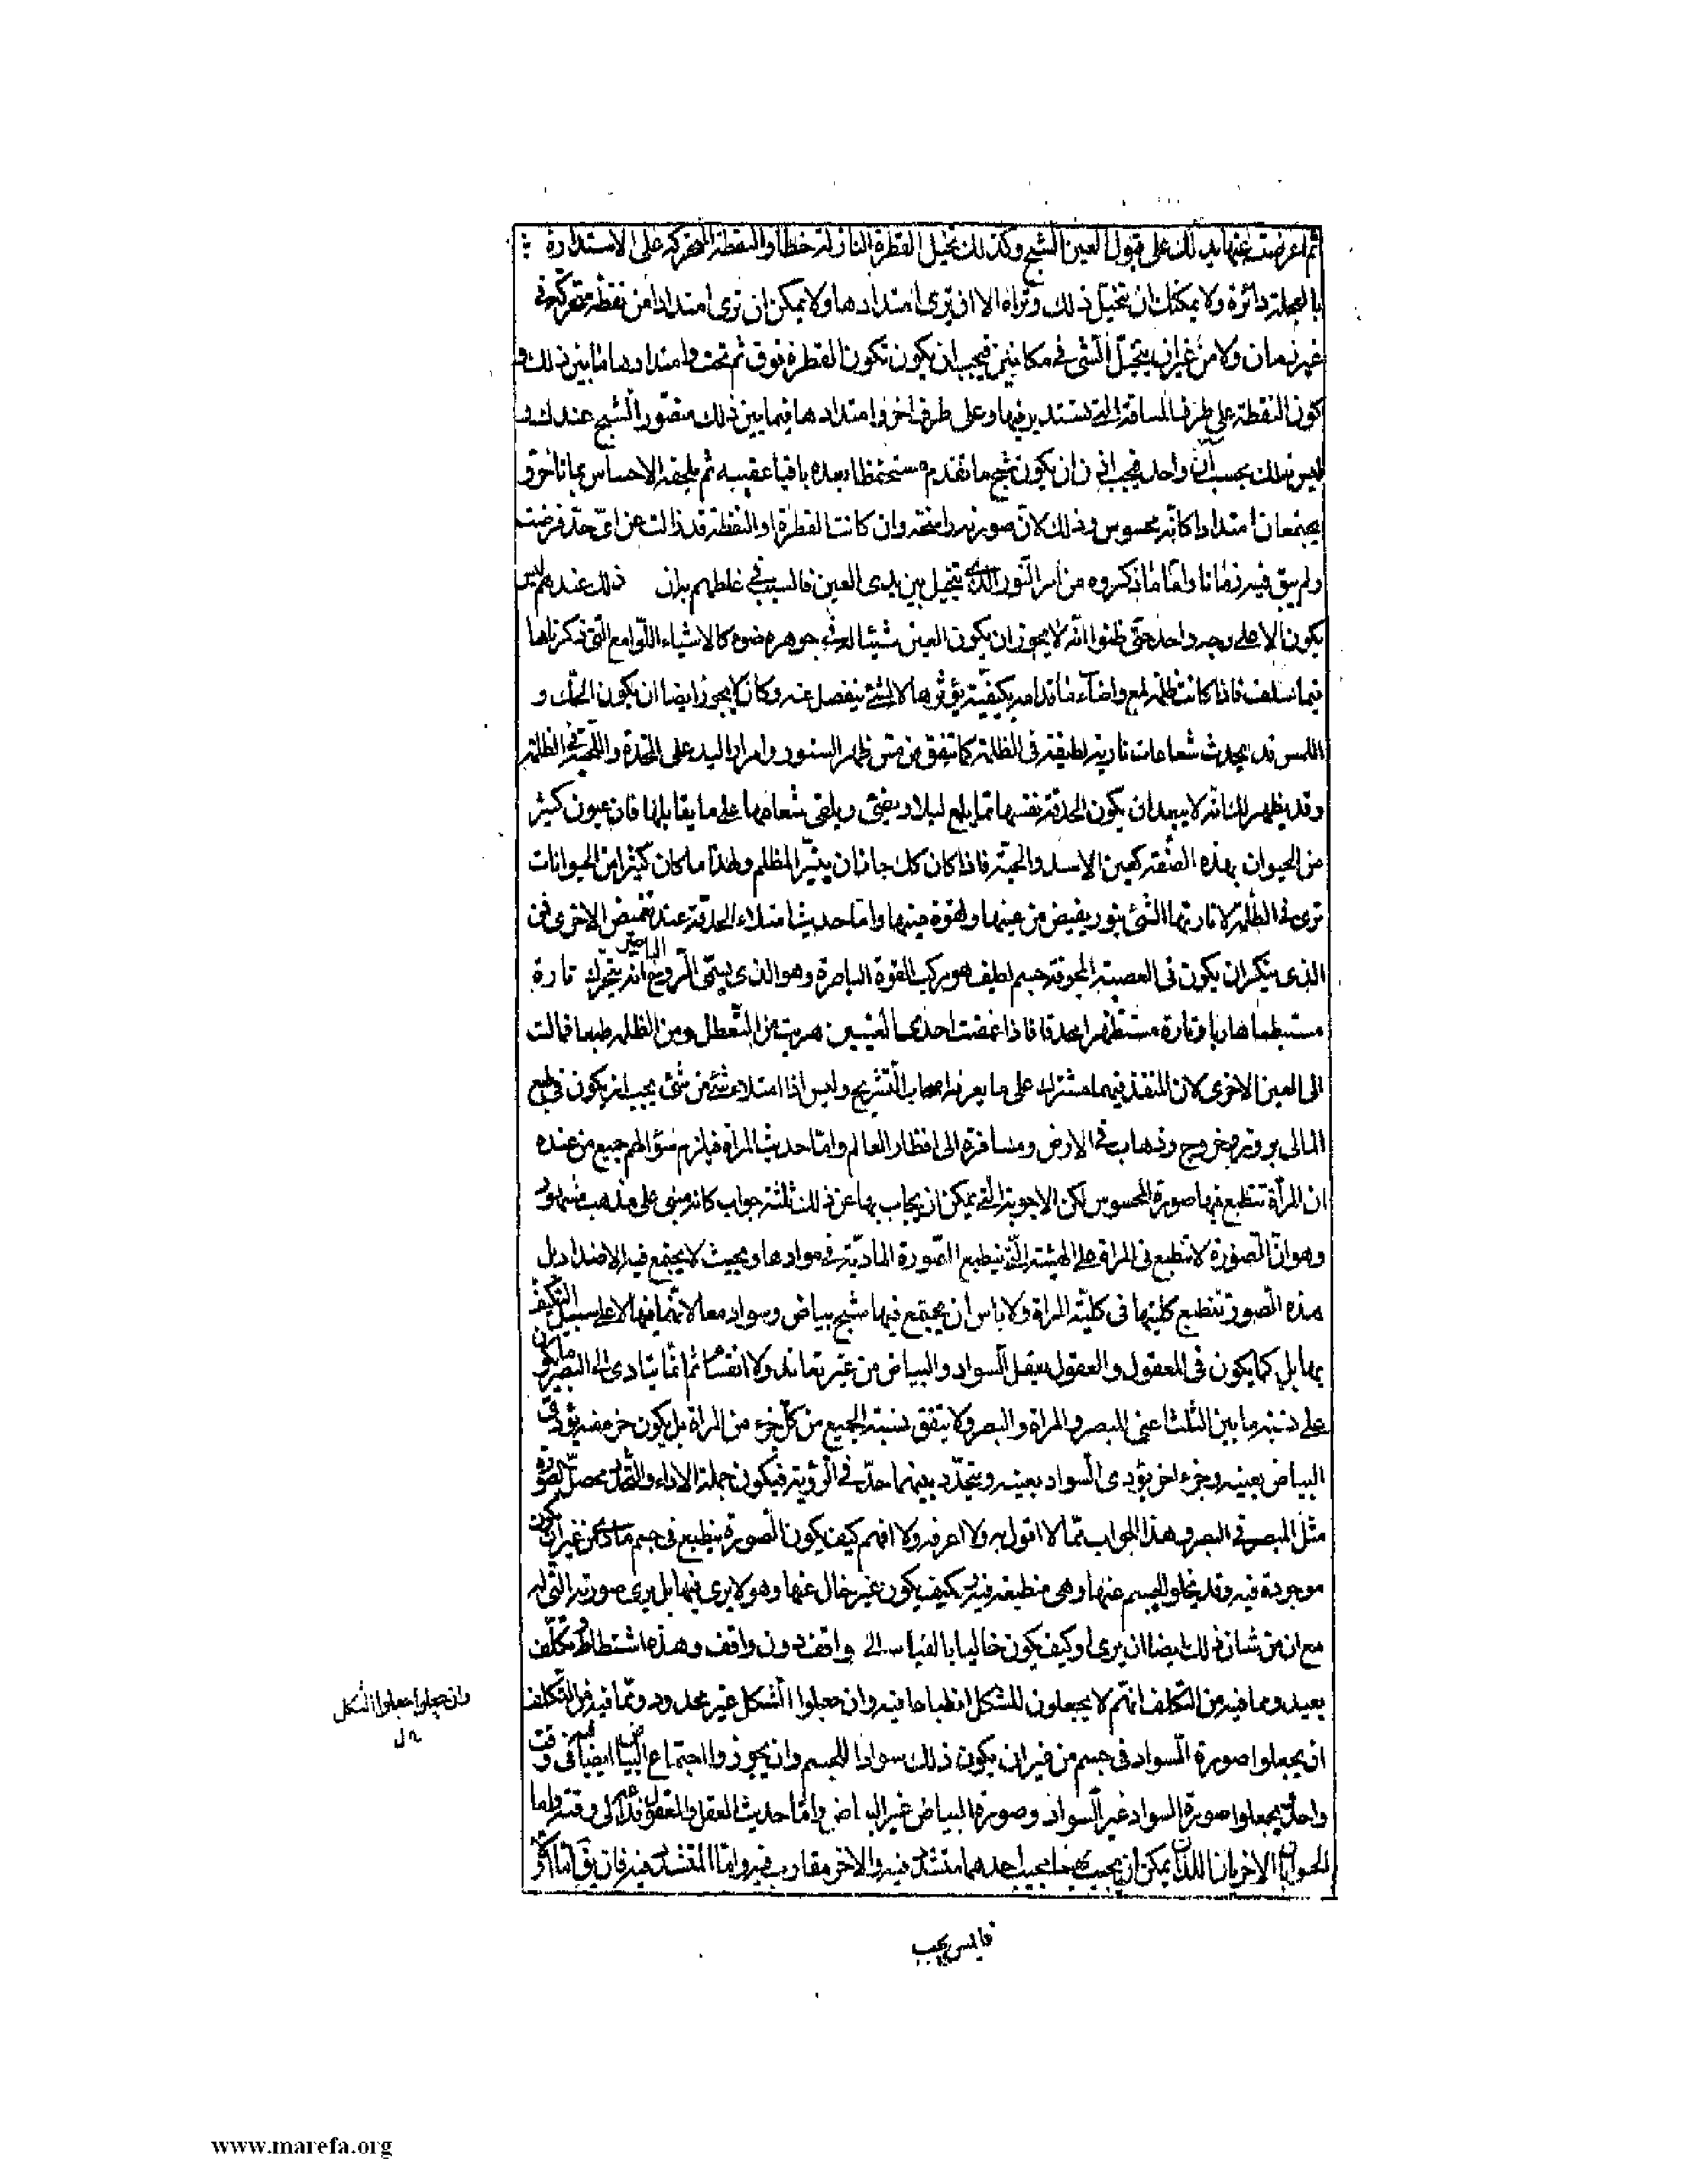 ثم اعرضت عنها يدلك على قبول العين الشبح وكذلك تخيل القطرة النازلة خطا والنقطة المتحركة على الاستدارة
بالعجلة دائرة ولا يمكنك ان تتخيل ذلك وتراه الا ان ترى امتدادها ولا يمكن ان ترى امتدادا من نقطة متحركة في
غير زمان ولا من غير ان يتخيل الشئ في مكانين فيجب ان يكون تكون القطرة فوق ثم تحت وامتدادها ما بين ذلك و
كون النقطة على طرف المسافة التي تستدير فيها وعلى طرف اخر وامتدادها فيما بين ذلك متصور الشبح عندك و
ليس ذلك بحسب آن واحد فيجب اذن ان يكون شبح ما تقدم مستحفظا بعده باقيا عقيبه ثم يلحقه الاحساس بما تاخر و
يجتمعان امتدادا كانه محسوس وذلك لان صورته راسخة وان كانت القطرة او النقطة قد زالت عن اى حد فرضت
ولم يبق فيه زمانا واما ما ذكروه من امر النور الذى يتخيل بين يدى العين فالسبب في غلطهم بان ذلك عندهم ليس
يكون الا على وجه واحد حتى ظنوا انه لا يجوز ان يكون العين شيئا له في جوهره ضوء كالاشياء اللوامع التي ذكرناها
فيما سلف فاذا كانت ظلمة لمع واضاء ما قدامه بكيفية يؤثرها لا لشئ ينفصل عنه وكان لا يجوز ايضا ان يكون الحك و
اللمس قد يحدث شعاعات نارية لطيفة في الظلمة كما يتفق من مس ظهر السنور وامرار اليد على المخدة واللحية في الظلمة
وقد يظهر لك انه لا يبعد ان يكون الحدقة نفسها مما يلمع ليلا ويضئ ويلقى شعاعها على ما يقابلها فان عيون كثير
من الحيوان بهذه الصفة كعين الاسد والحية فاذا كان كك جاز ان ينير المظلم ولهذا ما كان كثير من الحيوانات
ترى في الظلمة لانارتها الشئ بنور يفيض من عينها ولقوة عينها واما حديث امتلاء الحدقة عند تغميض الاخرى فمن
الذى ينكر ان يكون في العصبة المجوفة جسم لطيف هو مركب القوة الباصرة وهو الذى يسمى الروح الباصر انه يتحرك تارة
مستبطنا هاربا وتارة مستظهرا محدقا فاذا غمضت احدى العينين هربت من التعطل ومن الظلمة طبعا فمالت
الى العين الاخرى لان المنفذ فيهما مشترك على ما يعرفه اصحاب التشريح وليس اذا امتلاء شئ من شئ يجب ان يكون في طبع
المالى بروز وخروج وذهاب في الارض ومسافرة الى اقطار العالم واما حديث المراة فيلزم سؤالهم جميع من عنده
ان المرآة تنطبع فيها صورة المحسوس لكن الاجوبة التي يمكن ان يجاب بها عن ذلك ثلثة جواب كانه مبنى على مذهب مشهور
وهو ان الصورة لا تنطبع في المراة على الهيئة التي ينطبع الصورة المادية في موادها وبحيث لا يجتمع فيه الاضداد بل
هذه الصورة تنطبع كليتها في كلية المراة ولا باس ان يجتمع فيها شبح بياض وسواد معا لانهما فيها لا على سبيل التكيف
بهما بل كما يكون في المعقول والعقول يعقل السواد والبياض من غير تعاند ولا انقسام ثم انما يتادى الى البصر ما يكون
على نسبة ما بين الثلث اعنى المبصر والمراة والبصر ولا يتفق نسبة الجميع من كل جزء من المراة بل يكون جزء منه يؤدى
البياض بعينه وجزء اخر يؤدى السواد بعينه ويتحدد بينهما حد في الرؤية فيكون جملة الاداء والتحدد محصل لصورة
مثل المبصر في البصر وهذا الجواب مما لا اقول به ولا اعرفه ولا افهم كيف يكون الصورة ينطبع في جسم مادى من غير ان يكون
موجودة فيه وقد يخلو الجسم عنها وهى منطبعة فيه وكيف يكون غير خال عنها وهو لا يرى فيها بل يرى صورته التي له
مع ان من شان ذلك ايضا ان يرى او كيف يكون خاليا بالقياس الى واقف دون واقف وهذا اشتطاط وتكلف
بعيد ومما فيه من التكلف انهم لا يجعلون للشكل انطباعا فيه وان جعلوا الشكل غير محدود ومما فيه من التكلف
ان يجعلوا صورة السواد في جسم من غير ان يكون ذلك سوادا للجسم وان يجوزوا اجتماع البياض ايضا فيه في وقت
واحد ويجعلوا صورة السواد غير السواد وصورة البياض غير البياض واما حديث العقل والمعقول فدعه الى وقته واما
الجوابان الاخران اللذان يمكن ان يجيب بهما مجيب احدهما متشدد فيه والاخر مقارب فيه واما المتشدد فيه فان يق اما اكثر
وان جعلوا جعلوا الشكل
فليس يجب
www.marefa.org